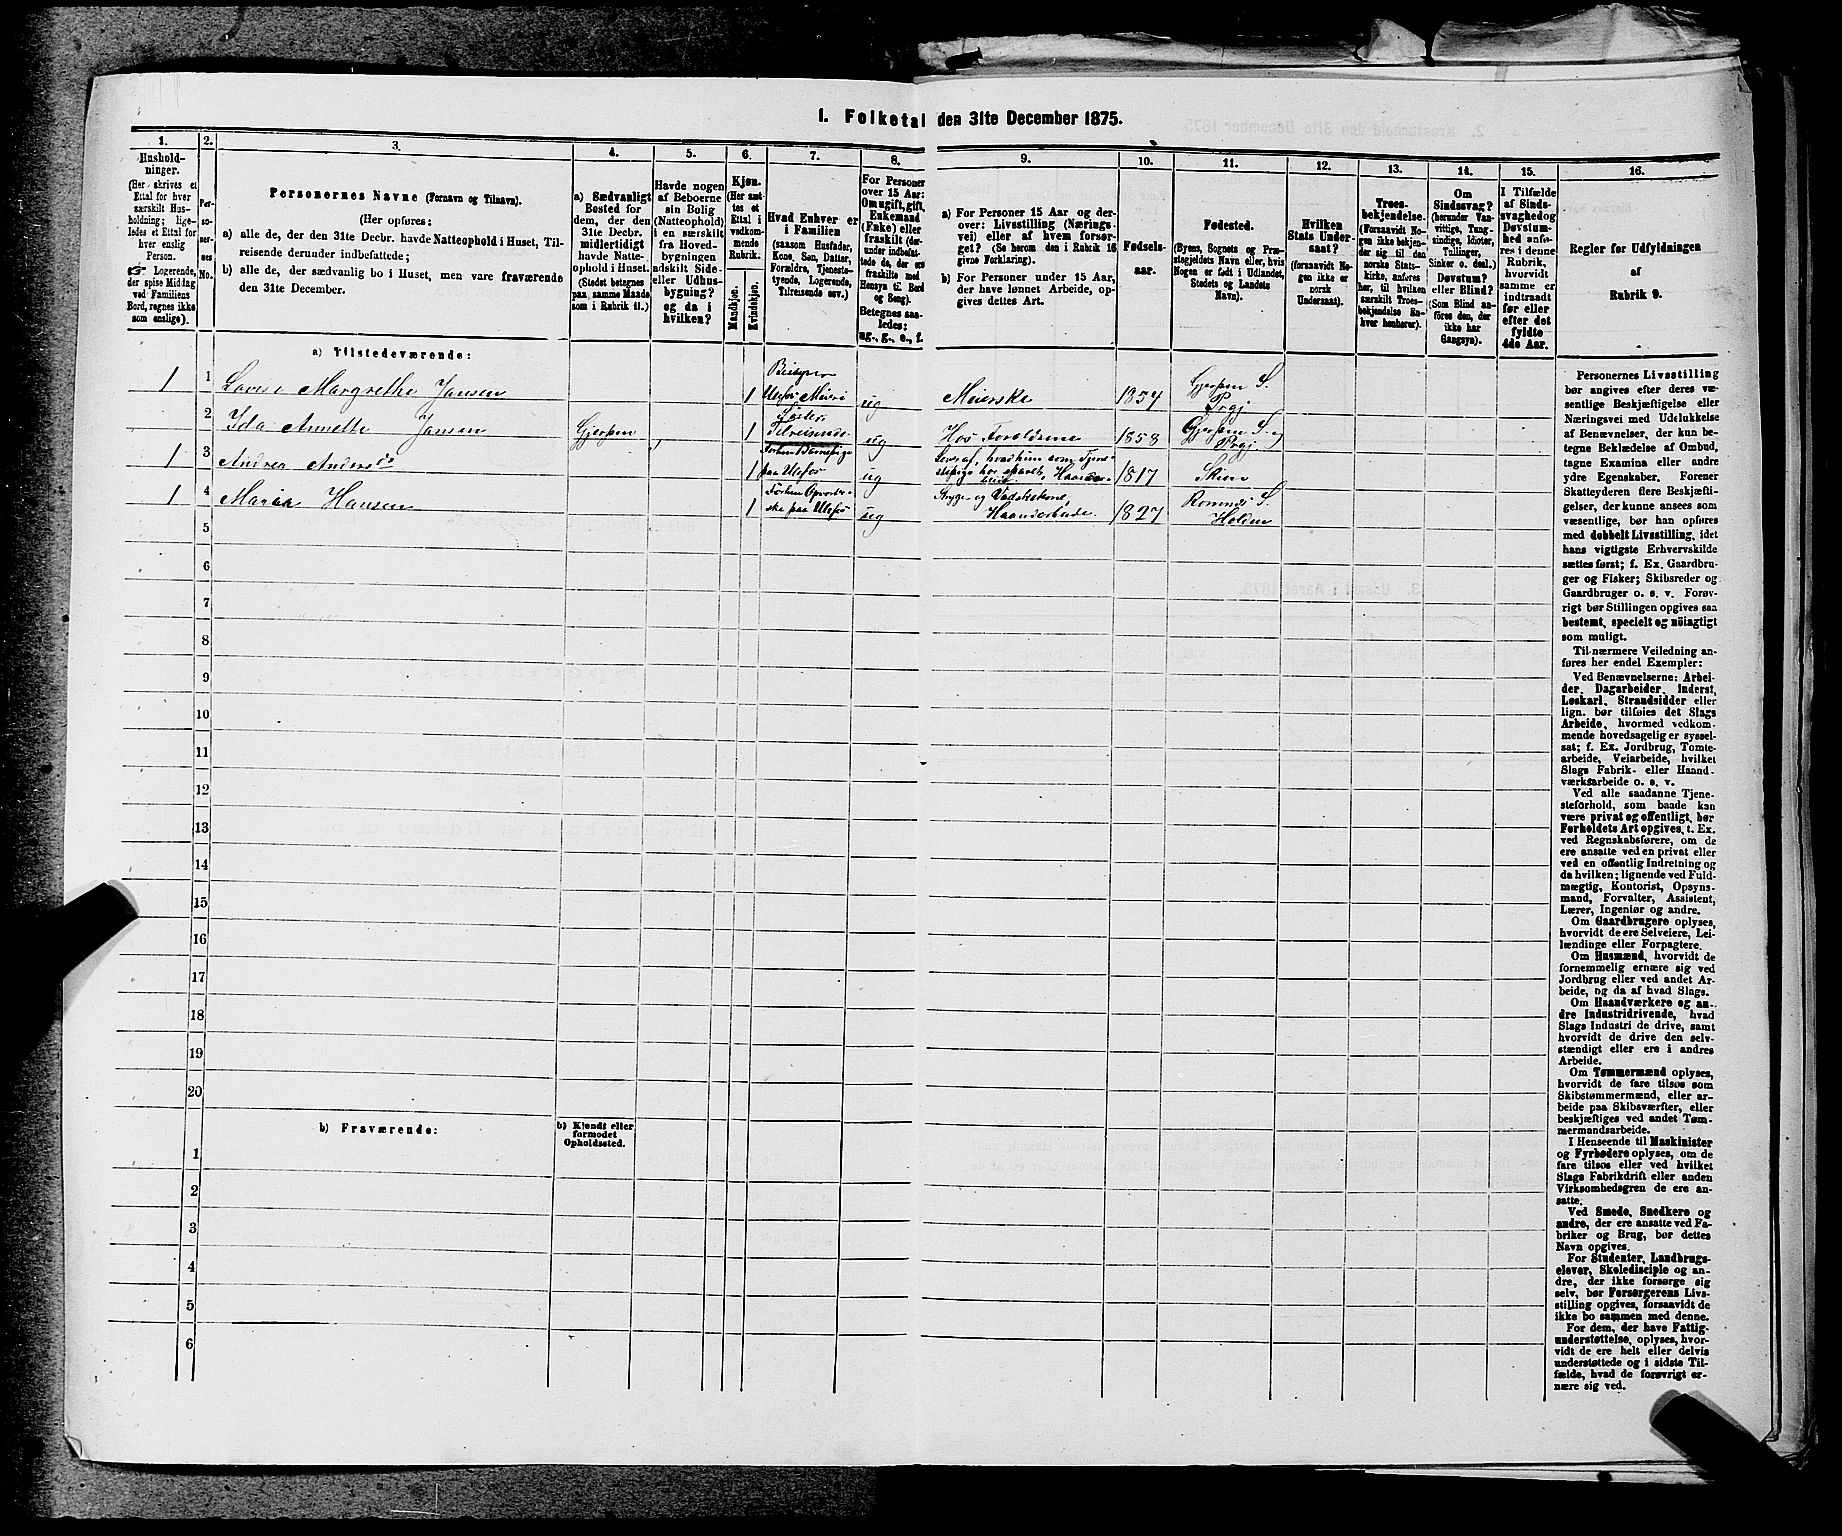 1. Folketal den 31te December 1875.
1. 2. 3. 4. 5. 6. 7. 8. 9. 10. 11. 12. 13. 14. 15. 16.
Hushold-
ninger.
(Her skrives et
Ettal for hver
særskilt Hus-
holdning; lige-
ledes et Ettal for
hver enslig
Person.
☞ Logerende,
der spise Middag
ved Familiens
Bord, regnes ikke
som enslige).
Per-
so-
ner-
nes
No.
Personernes Navne (Fornavn og Tilnavn).
(Her opføres:
a) alle de, der den 31te Decbr. havde Natteophold i Huset, Til-
reisende derunder indbefattede;
b) alle de, der sædvanlig bo i Huset, men vare fraværende
den 31te December.
a) Sædvanligt
Bosted for
dem, der den
31te Decbr.
midlertidigt
havde Natte-
ophold i Huset.
(Stedet betegnes
paa samme Maade
som i Rubrik 11.)
Havde nogen
af Beboerne
sin Bolig
(Natteophold)
i en særskilt
fra Hoved-
bygningen
adskilt Side-
eller Udhus-
bygning?
og da i
hvilken?
Kjøn.
(Her sæt-
tes et
Ettal i
vedkom-
mende
Rubrik.
Mandkjøn.
Kvindekjøn.
Hvad Enhver er
i Familien
(saasom Husfader,
Kone, Søn, Datter,
Forældre, Tjeneste-
tyende, Logerende,
Tilreisende osv.)
For Personer
over 15 Aar:
Om ugift, gift,
Enkemand
(Enke) eller
fraskilt (der-
under indbefat-
tede de, der ere
fraskilte med
Hensyn til Bord
og Seng).
Betegnes saa-
ledes:
ug., g., e., f.
a) For Personer 15 Aar og der-
over: Livsstilling (Nærings-
vei) eller af hvem forsør-
get? (Se herom den i Rubrik 16
givne Forklaring).
b) For Personer under 15 Aar,
der have lønnet Arbeide, op-
gives dettes Art.
Fødsels-
aar.
Fødested.
(Byens, Sognets og Præ-
stegjeldets Navn eller, hvis
Nogen er født i Udlandet,
Stedets og Landets
Navn).
Hvilken
Stats Under-
saat?
(forsaavidt No-
gen ikke er
norsk
Undersaat).
Troes-
bekjendelse.
(Forsaavidt No-
gen ikke bekjen-
der sig til den
norske Stats-
kirke, anføres
her, til hvilken
særskilt Troes-
bekjendelse En-
hver henhører).
Om
Sindssvag?
(herunder Van-
vittige, Tung-
sindige, Idioter,
Tullinger,
Sinker o. desl.)
Døvstum?
eller Blind?
(Som Blind an-
føres den, der
ikke har
Gangsyn).
I Tilfælde
af Sinds-
svaghed og
Døvstum-
hed anfø-
res i denne
Rubrik,
hvorvidt
samme er
indtraadt
før eller
efter det
fyldte
4de Aar.
Regler for Udfyldningen
af
Rubrik 9.
a) Tilstedeværende:
1 1 Lovise Margrethe Jansen 1 Bestyrer Ulefos Meieri ug Meierske 1854 Gjerpen S. Prgj
2 Ida Annette Jansen Gjerpen 1 Søster, Tilreisende ug Hos Forældrene 1858 Gjerpen S. og Prgj
1 3 Andrea Andersd 1 Forhen Barnepige paa Ulefos ug Lever af, hvad hun som Tjene-
stepige har sparet, Haandar-
beide 1817 Skien
1 4 Maria Hansen 1 Forhen Opvarter-
ske paa Ulefos ug Stryge- og Vadskekone,
Haandarbeide. 1827 Romnes S. Holden
5
6
7
8
9
10
11
12
13
14
15
16
17
18
19
20
b) Fraværende:
b) Kjendt eller
formodet
Opholdssted.
1
2
3
4
5
6
Personernes Livsstilling
bør angives efter deres væ-
sentlige Beskjæftigelse eller
Næringsvei med Udelukkelse
af Benævnelser, der kun be-
tegne Beklædelse af Ombud,
tagne Examina eller andre
ydre Egenskaber. Forener
Skatteyderen flere Beskjæfti-
gelser, der kunne ansees som
væsentlige, bør han opføres
med dobbelt Livsstilling, idet
hans vigtigste Erhvervskilde
sættes først; f. Ex. Gaardbru-
ger og Fisker; Skibsreder og
Gaardbruger o. s. v. Forøv-
rigt bør Stillingen opgives saa
bestemt, specielt og nöiagtigt
som muligt.
Til nærmere Veiledning an-
føres her endel Exempler:
Ved Benævnelserne: Arbei-
der, Dagarbeider, Inderst,
Løskarl, Strandsidder eller
lign. bør tilføies det Slags
Arbeide, hvormed vedkom-
mende hovedsagelig er syssel-
sat; f. Ex. Jordbrug, Tomte-
arbeide, Veiarbeide, hvilket
Slags Fabrik- eller Haand-
værksarbeide o. s. v.
Ved alle saadanne Tjene-
steforhold, som baade kan
være privat og offentligt, bør
Forholdets Art opgives, t. Ex.
ved Regnskabsførere, om de
ere ansatte ved en privat eller
ved en offentlig Indretning og
da hvilken; lignende ved Fuld-
mægtig, Kontorist, Opsyns-
mand, Forvalter, Assistent,
Lærer, Ingeniør og andre.
Om Gaardbrugere oplyses,
hvorvidt de ere Selveiere, Lei-
lændinge eller Forpagtere.
Om Husmænd, hvorvidt de
fornemmelig ernære sig ved
Jordbrug eller ved andet Ar-
beide, og da af hvad Slags.
Om Haandværkere og an-
dre Industridrivende, hvad
Slags Industri de drive, samt
hvorvidt de drive den selv-
stændigt eller ere i andres
Arbeide.
Om Tømmermænd oplyses,
hvorvidt de fare tilsøs som
Skibstømmermænd, eller ar-
beide paa Skibsværfter, eller
beskjæftiges ved andet Tøm-
mermandsarbeide.
I Henseende til Maskinister
og Fyrbødere oplyses, om de
fare tilsøs eller ved hvilket
Slags Fabrikdrift eller anden
Virksomhedsgren de ere an-
satte.
Ved Smede, Snedkere og
andre, der ere ansatte ved Fa-
briker og Brug, bør dettes
Navn opgives.
For Studenter, Landbrugs-
elever, Skoledisciple og an-
dre, der ikke forsørge sig
selv, bør Forsørgerens Livs-
stilling opgives, forsaavidt de
ikke bo sammen med denne.
For dem, der have Fattig-
understøttelse, oplyses, hvor-
vidt de ere helt eller delvis
understøttede og i sidste Til-
fælde, hvad de forøvrigt er-
nære sig ved.